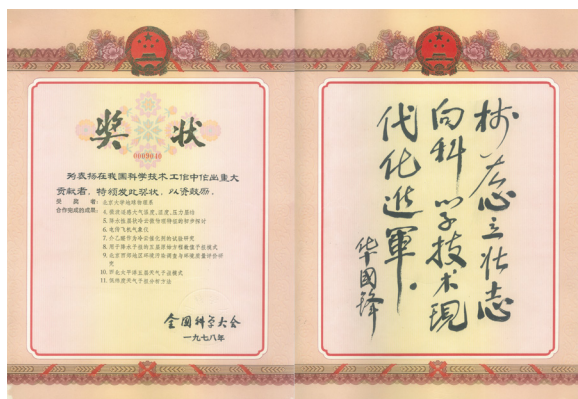 奖状
0009040
为表扬在我国科学技术工作中作出重大
贡献者，特颁发此奖状，以资鼓励。
受奖者：北京大学地球物理系
合作完成的成果：4.微波遥感大气温度，湿度，压力层结
5.降水性层状冷云微物理特征的初步探讨
6.电除飞机气象仪
7.介乙醛作为冷云催化剂的试验研究
8.用于降水予报的五层原始方程数值予报模式
9.北京西郊地区环境污染调查与环境质量评价研
究
10.西北太平洋台风天气予报模式
11.低纬度天气予报分析方法
全国科学大会
一九七八年
树雄心立壮志
向科学技术现
代化进军。
华国锋